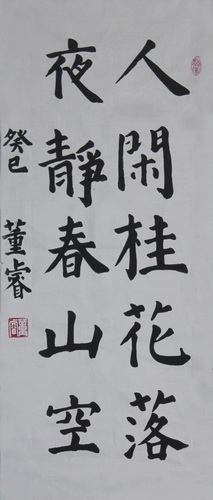 人閑桂花落
夜靜春山空
癸巳 董睿